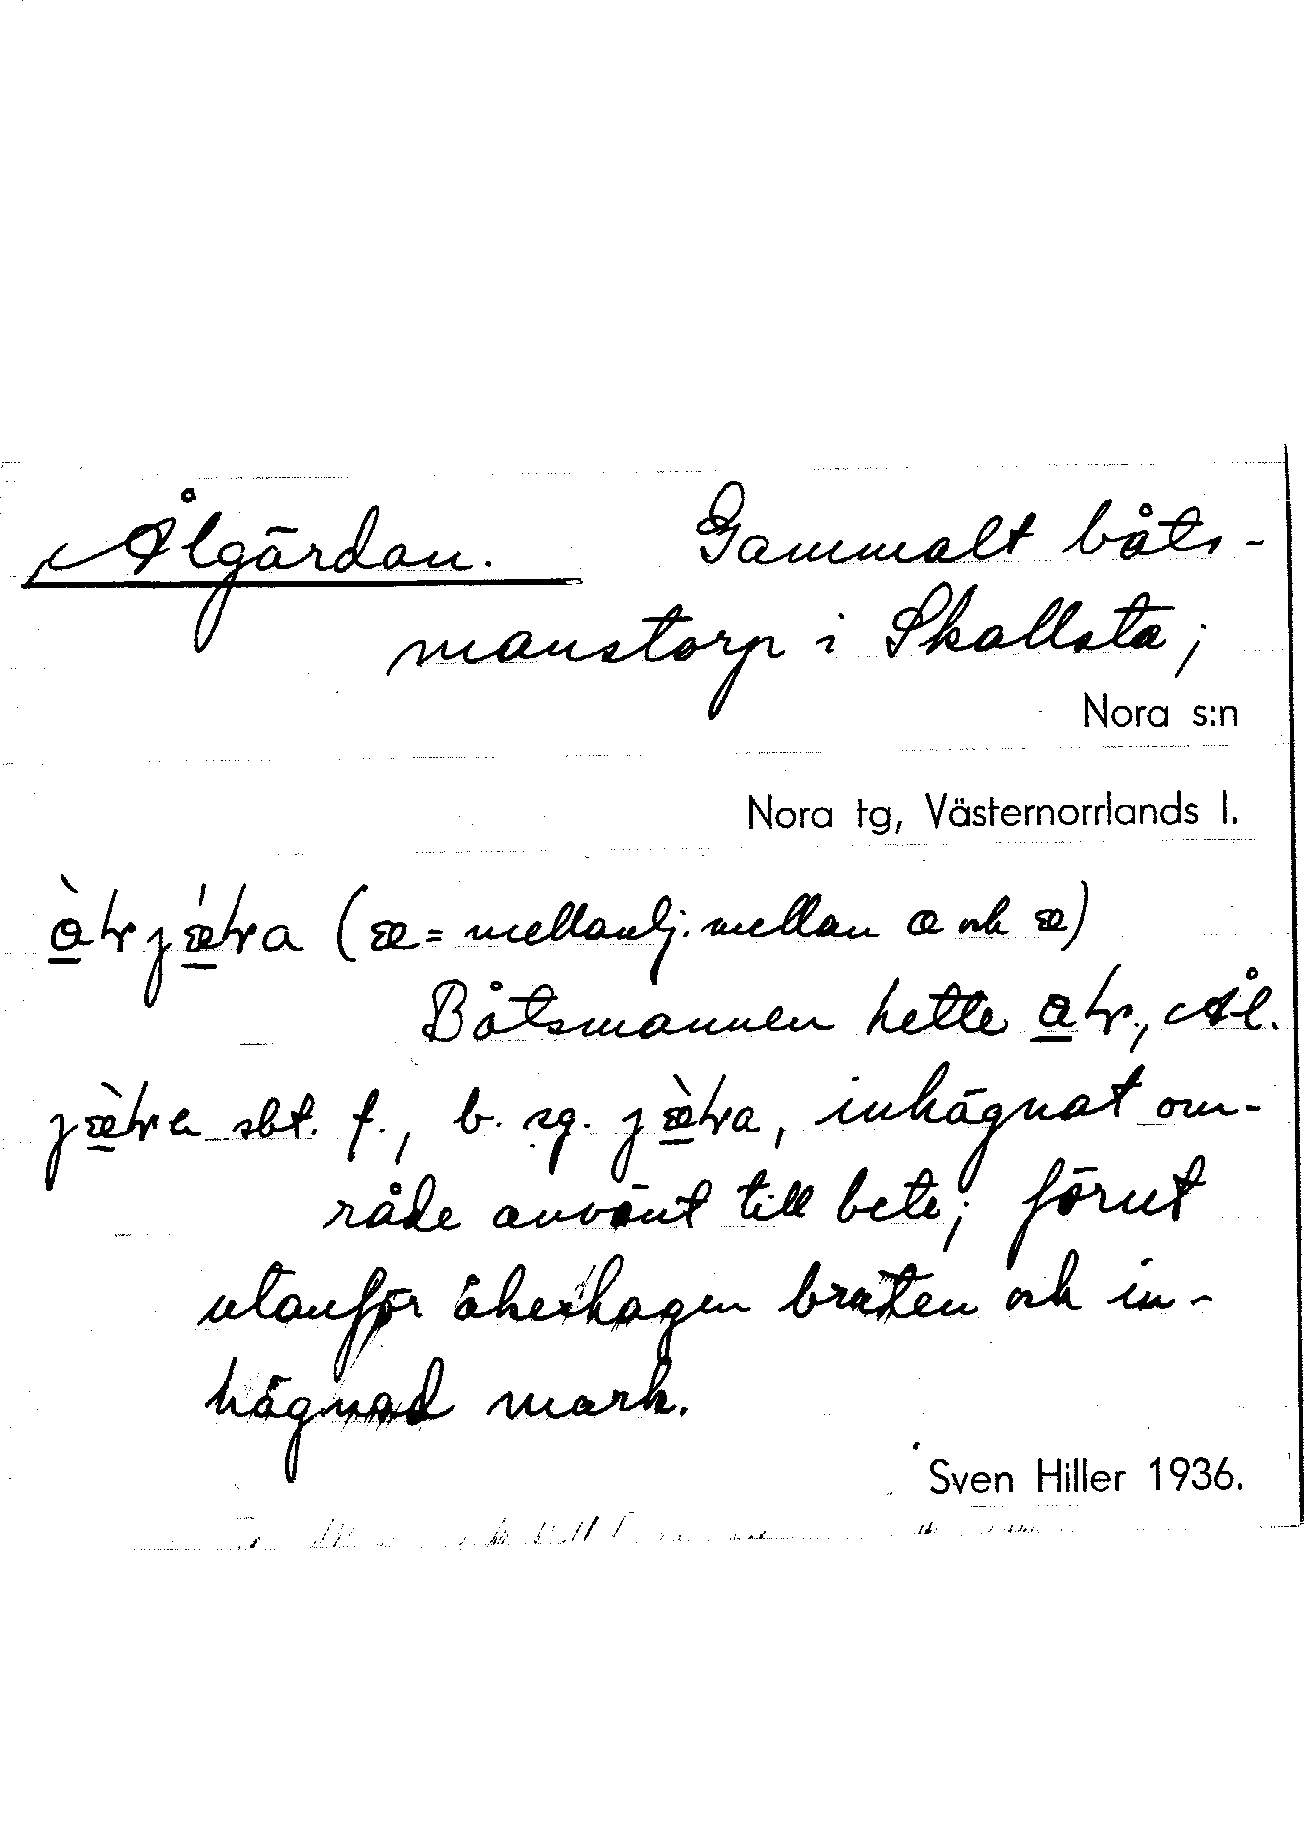 Ålgärdan. Gammalt båts-
manstorp i Skallsta;
Nora s:n
Nora tg, Västernorrlands l.
(æ = mellanlj. mellan a och æ)
Båtsmannen hette Ål.
sbt. f., b. sg. inhägnat om-
råde använt till bete; förut
utanför åkerhagen bruten och in-
hägnad mark.
Sven Hiller 1936.